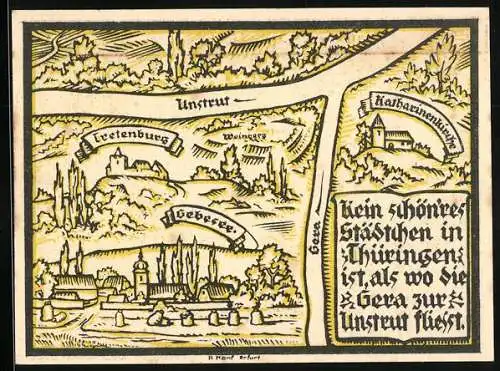 Unstrut
Tretenburg
Weinberg
Katharinenkirche
Gebesee.
Gera
Kein schön'res
Städtchen in
Thüringen
ist, als wo die
Gera zur
Unstrut fliesst.
Erfurt